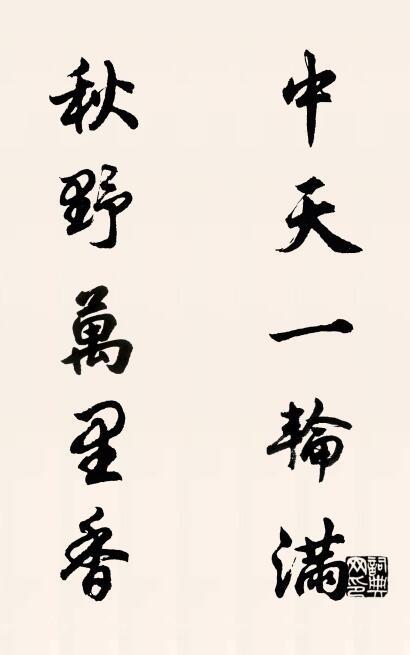 中天一輪滿
秋野萬里香
詞典網印